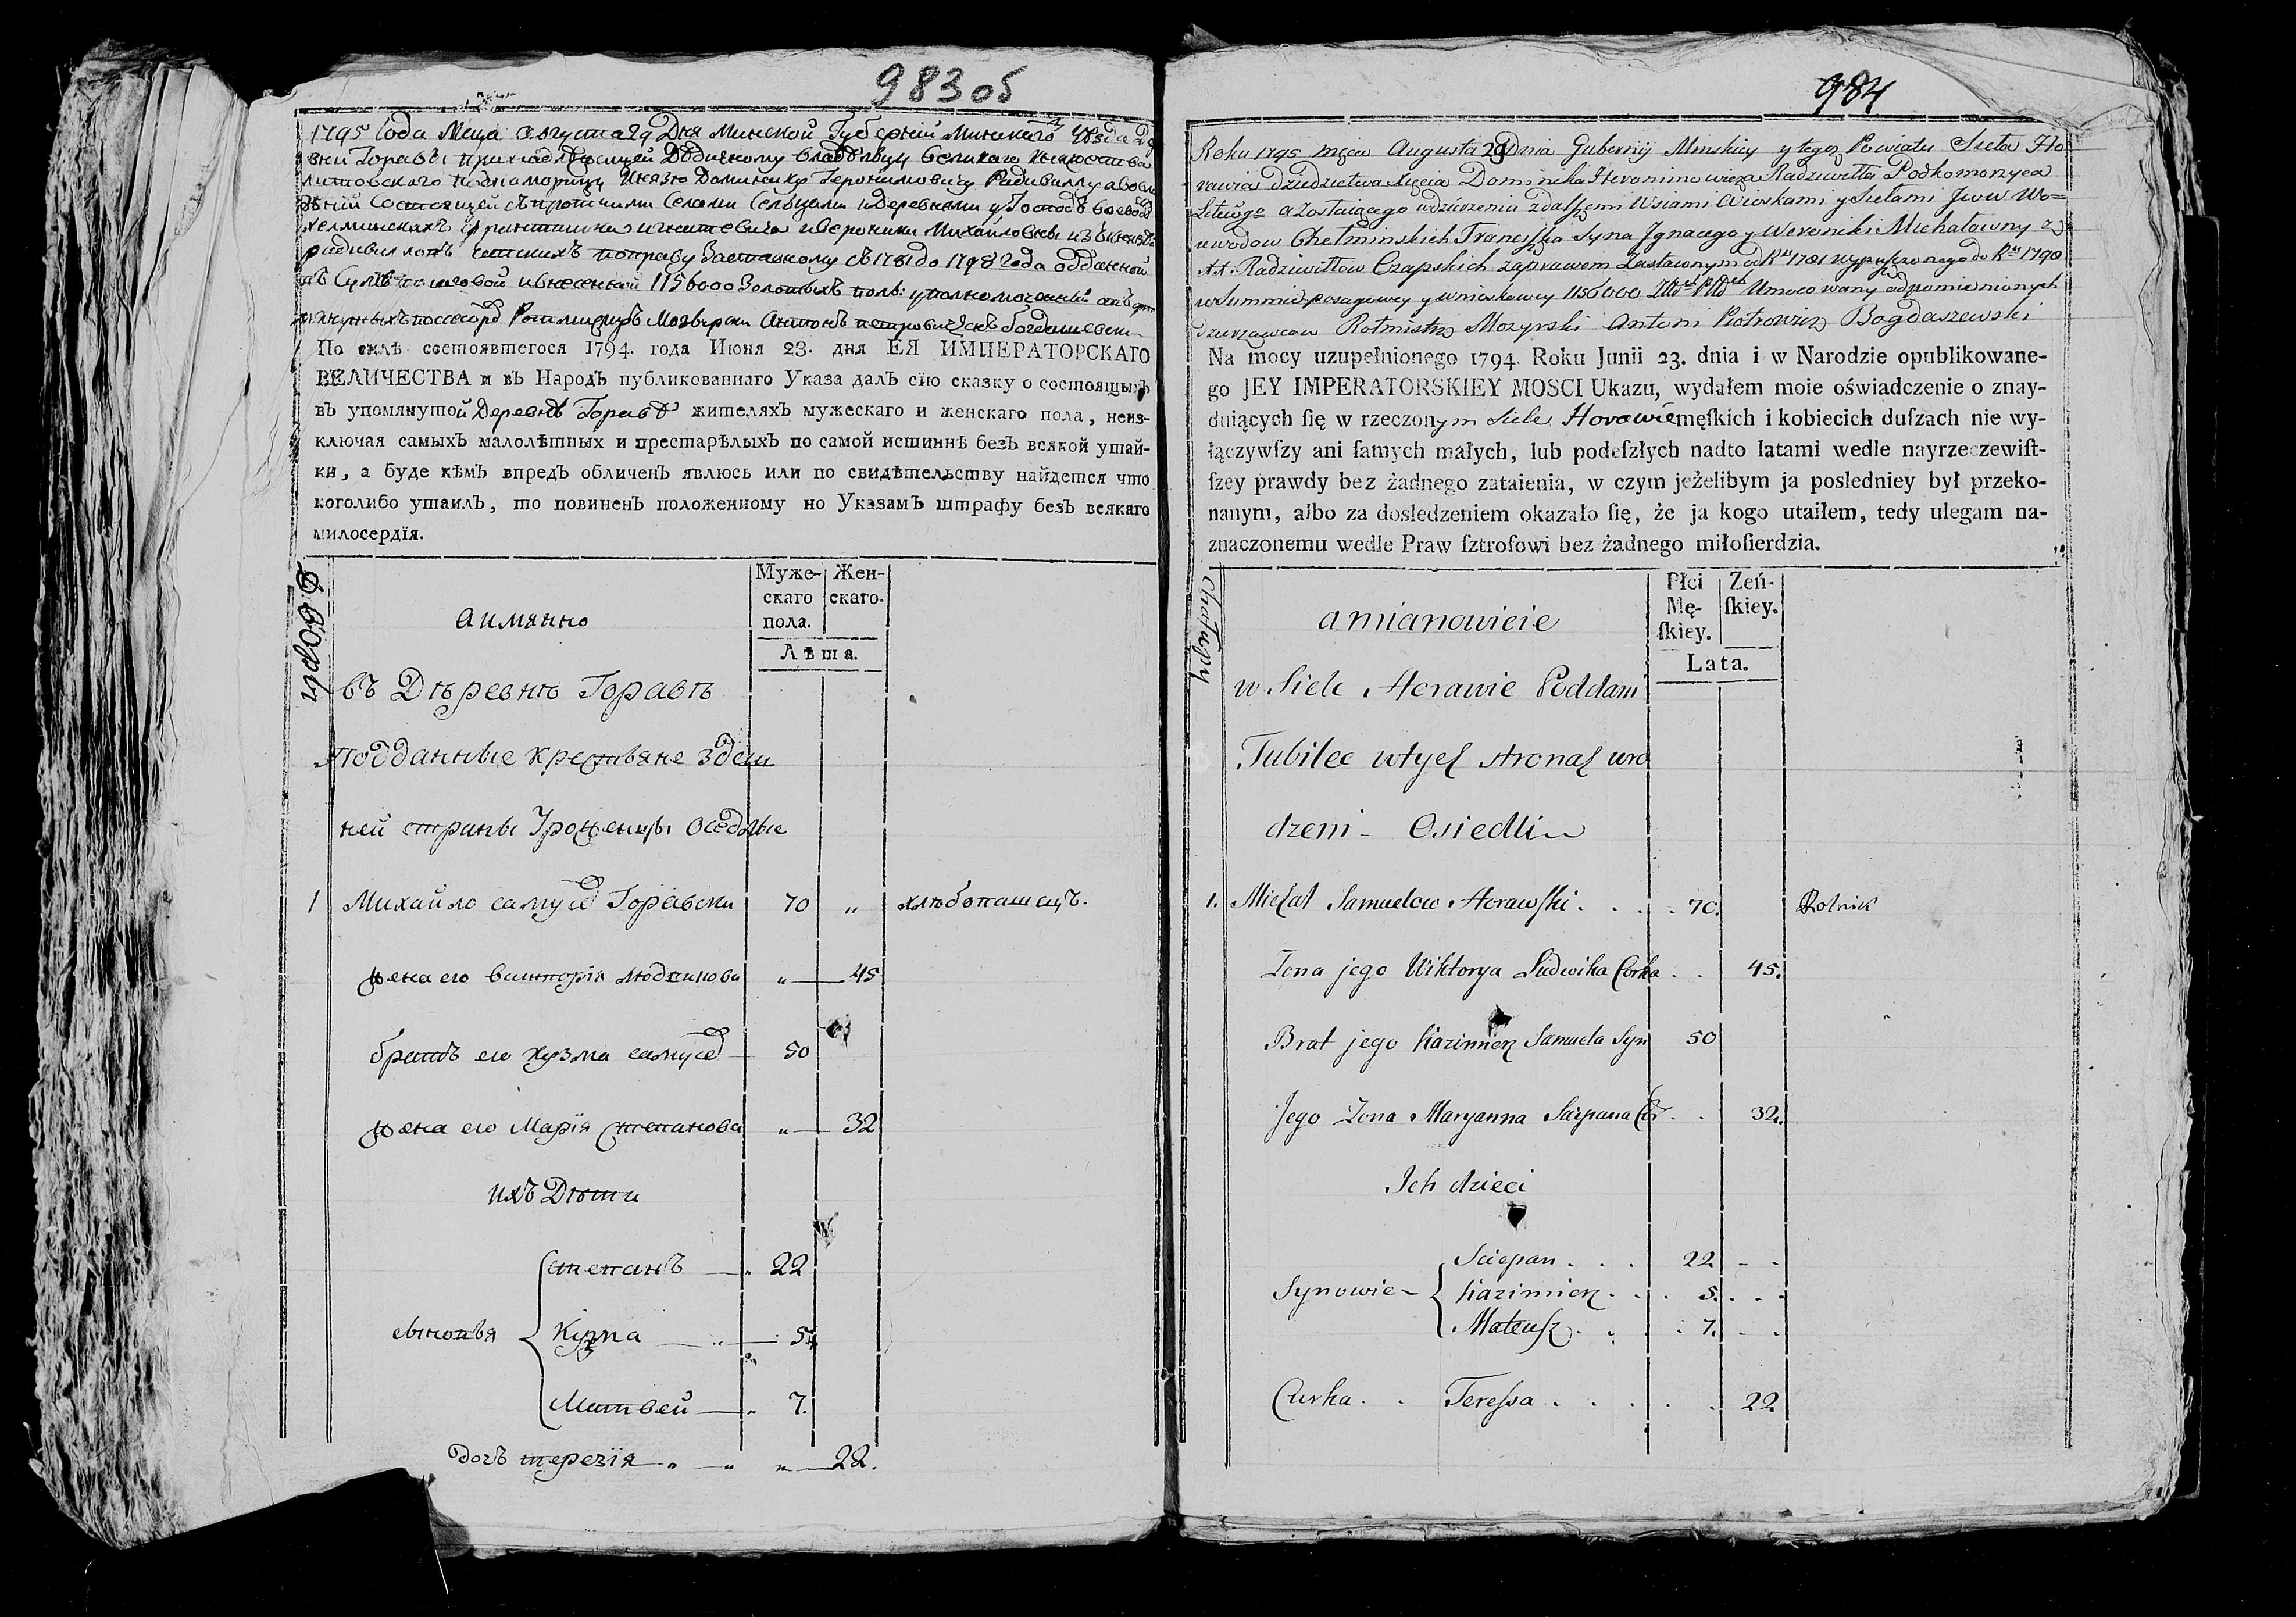 983 об
1795 Года Меца августа 29 Дня Минской Губерній Минскаго уезда Де
вни Горавы принадлежащей Дедичному владѣльцу великаго княжества
литовскаго подкаморицу Князю Доминику Геронимовичу Радивиллу а во вла
дѣній Состоящей съ протчими Селами Сельцами и Деревнями у Господъ воеводъ
хелминскихъ Франтишка игнатевича и вероники Михайловны изъ князей
радивиллохъ Чапскихъ по праву Заставному съ 1781 до 1798 Года отданной
въ Сумѣ посаговой и внесенной 1156000 Золотыхъ поль: уполномоченный отъ
Ротмистръ Мозырски Антонъ петровичъ Богдашевски
По силѣ состоявшегося 1794. года Июня 23. дня ЕЯ ИМПЕРАТОРСКАГО
ВЕЛИЧЕСТВА и въ Народъ публикованнаго Указа далъ сїю сказку о состоящихъ
въ упомянутой Деревнѣ Горавѣ жителяхъ мужескаго и женскаго пола, неиз-
ключая самыхъ малолѣтныхъ и престарѣлыхъ по самой истиннѣ безъ всякой утай-
ки, а буде кѣмъ впредъ обличенъ явлюсь или по свидѣтельству найдется что
коголибо утаилъ, то повиненъ положенному по Указамъ штрафу безъ всякаго
милосердїя.
Дворы
аимянно
Муже-
скаго
пола.
Жен-
скаго.
Лѣта.
въ Деревнѣ Горавѣ
Подданные крестьяне здеш
ней страны Уроженцы Оседлые
1 Михайло самуел Горавски 70 „ хлѣбопашецъ.
жена его викторія людвикова „ 45
братъ его кузма самуел 50
жена его Марія степанова „ 32
ихъ Дѣти
степанъ 22
сыновья Кузма 5
Матвей 7.
дочъ терезія „ „ „ 22.
984
Roku 1795 mięca Augusta 29 Dnia Gubernij Minskiey y tegoż Powiatu Sieła Ho
rawia dziedzictwa Xięcia Dominika Hieronimowicza Radziwiłła Podkomorzyca
Litewgo a zostaiącego w dzierzeniu z dalszemi Wsiami Wioskami y Siełami Jww Wo-
iewodow Chełminskich Franciszka Syna Jgnacego y Weroniki Michałowny z
XX. Radziwiłłow Czapskich za prawem Zastawnym od Ru 1781 wypuszczonego do Ru 1798
w Summie posagowey y wnioskowey 1156000 Złtch Plch Umocowany od pomienionych
dzierzawcow Rotmistrz Mozyrski Antoni Piotrowicz Bogdaszewski
Na mocy uzupełnionego 1794. Roku Junii 23. dnia i w Narodzie opublikowane-
go JEY IMPERATORSKIEY MOSCI Ukazu, wydałem moie oświadczenie o znay-
duiących ſię w rzeczonym Siele Horowie męſkich i kobiecich duſzach nie wy-
łączywſzy ani ſamych małych, lub podeſzłych nadto latami wedle nayrzeczewiſt-
ſzey prawdy bez żadnego zataienia, w czym jeżelibym ja posledniey był przeko-
nanym, albo za dosledzeniem okazało ſię, że ja kogo utaiłem, tedy ulegam na-
znaczonemu wedle Praw ſztrofowi bez żadnego miłoſierdzia.
Chałupy
a mianowicie
Płci
Mę-
ſkiey.
Żeń-
ſkiey.
Lata.
w Siele Horawie Poddani
Tubilec w tych stronach uro
dzeni - Osiedli
1. Michał Samuelow Horawſki . . . 70. Rolnik
Zona jego Wiktorya Ludwika Corka . . 45.
Brat jego Kazimierz Samuela Syn 50
Jego Zona Maryanna Sciepana Cor . . 32.
Jch dzieci
Sciepan . . . 22 - -
Synowie - Kazimierz . . . 5. . . .
Mateuſz . . . 7. - .
Curka . . Tereſsa . . . . . 22